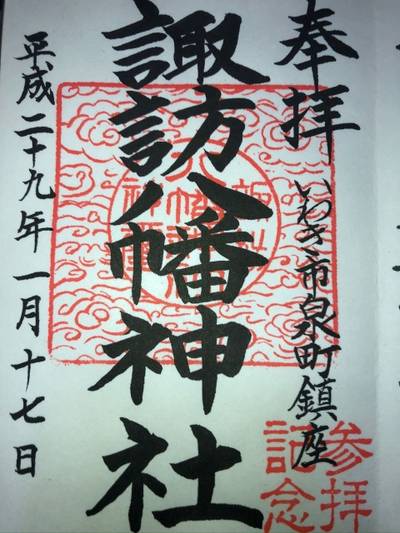 奉拝
いわき市泉町鎮座
諏訪八幡神社
平成二十九年一月十七日
参拝
記念